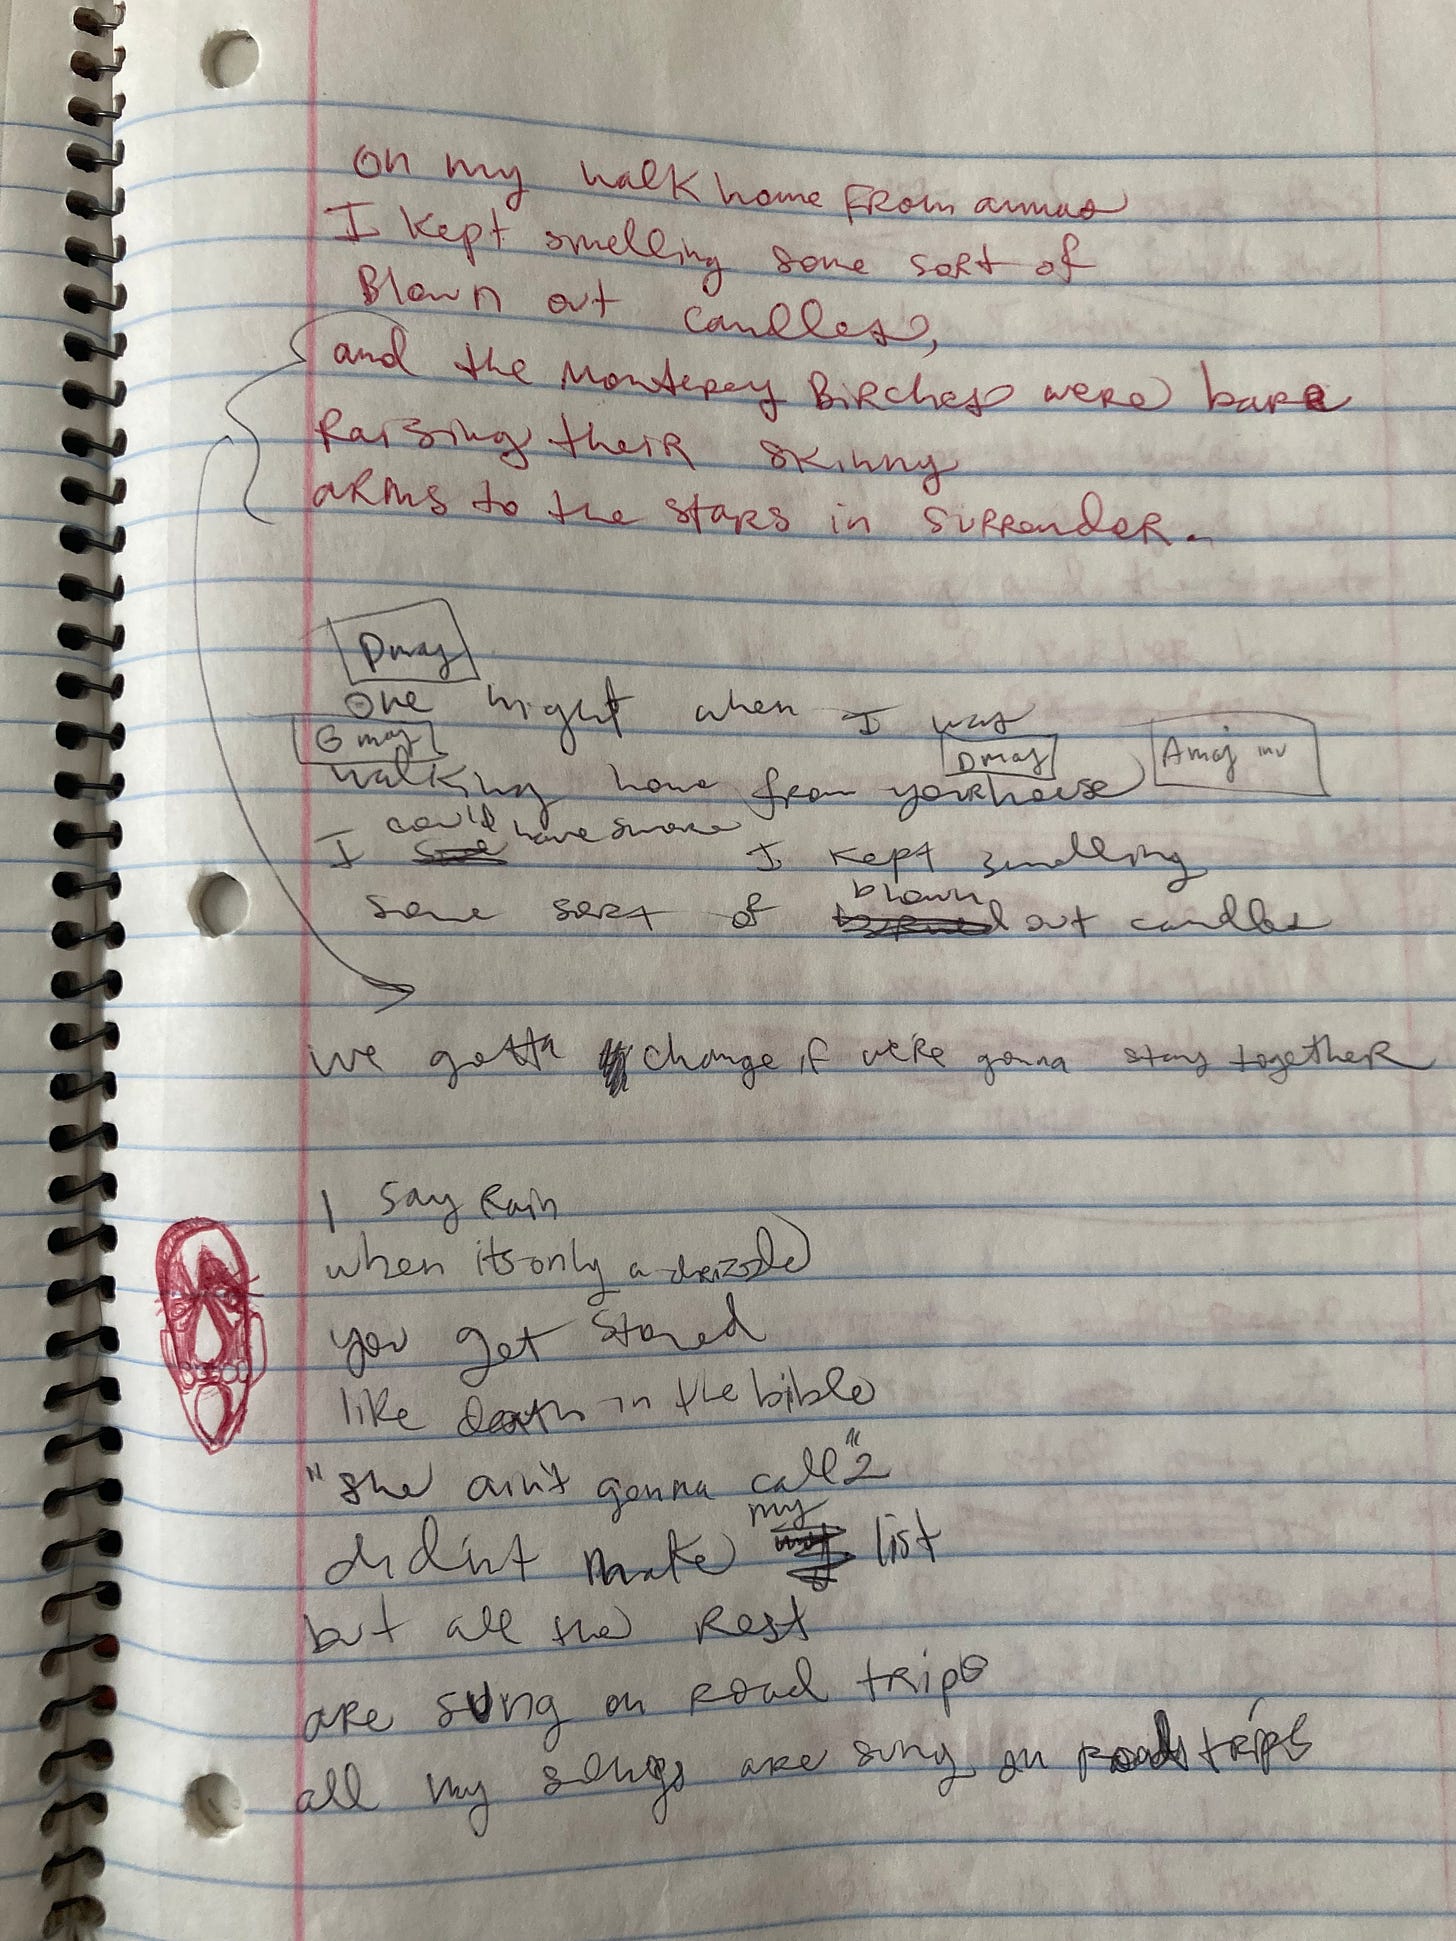 on my walk home from annas
I kept smelling some sort of
Blown out candles,
and the Monterey Birches were bare
Raising their skinny
arms to the stars in surrender.
Dmaj
one night when I was
G maj
Dmaj
Amaj inv
walking home from your house
could have swore
I I kept smelling
blown
some sort of out candles
we gotta change if we're gonna stay together
I say Rain
when its only a drizzle
you get stoned
like death in the bible
"she ain't gonna call"2
my
didn't make list
but all the Rest
are sung on road trips
all my songs are sung on road trips